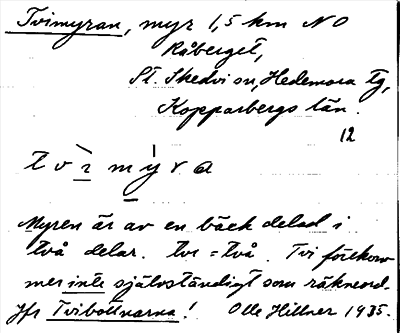 Tvimyran, myr 1,5 km NO
Råberget,
St. Skedvi sn, Hedemora tg,
Kopparbergs län.
12
t v ì m ý r a
Myren är av en bäck delad i
två delar. tvı = två. Tvi förekom
mer inte självständigt som räkneord.
Jfr Tvibottnarna! Olle Hillner 1935.